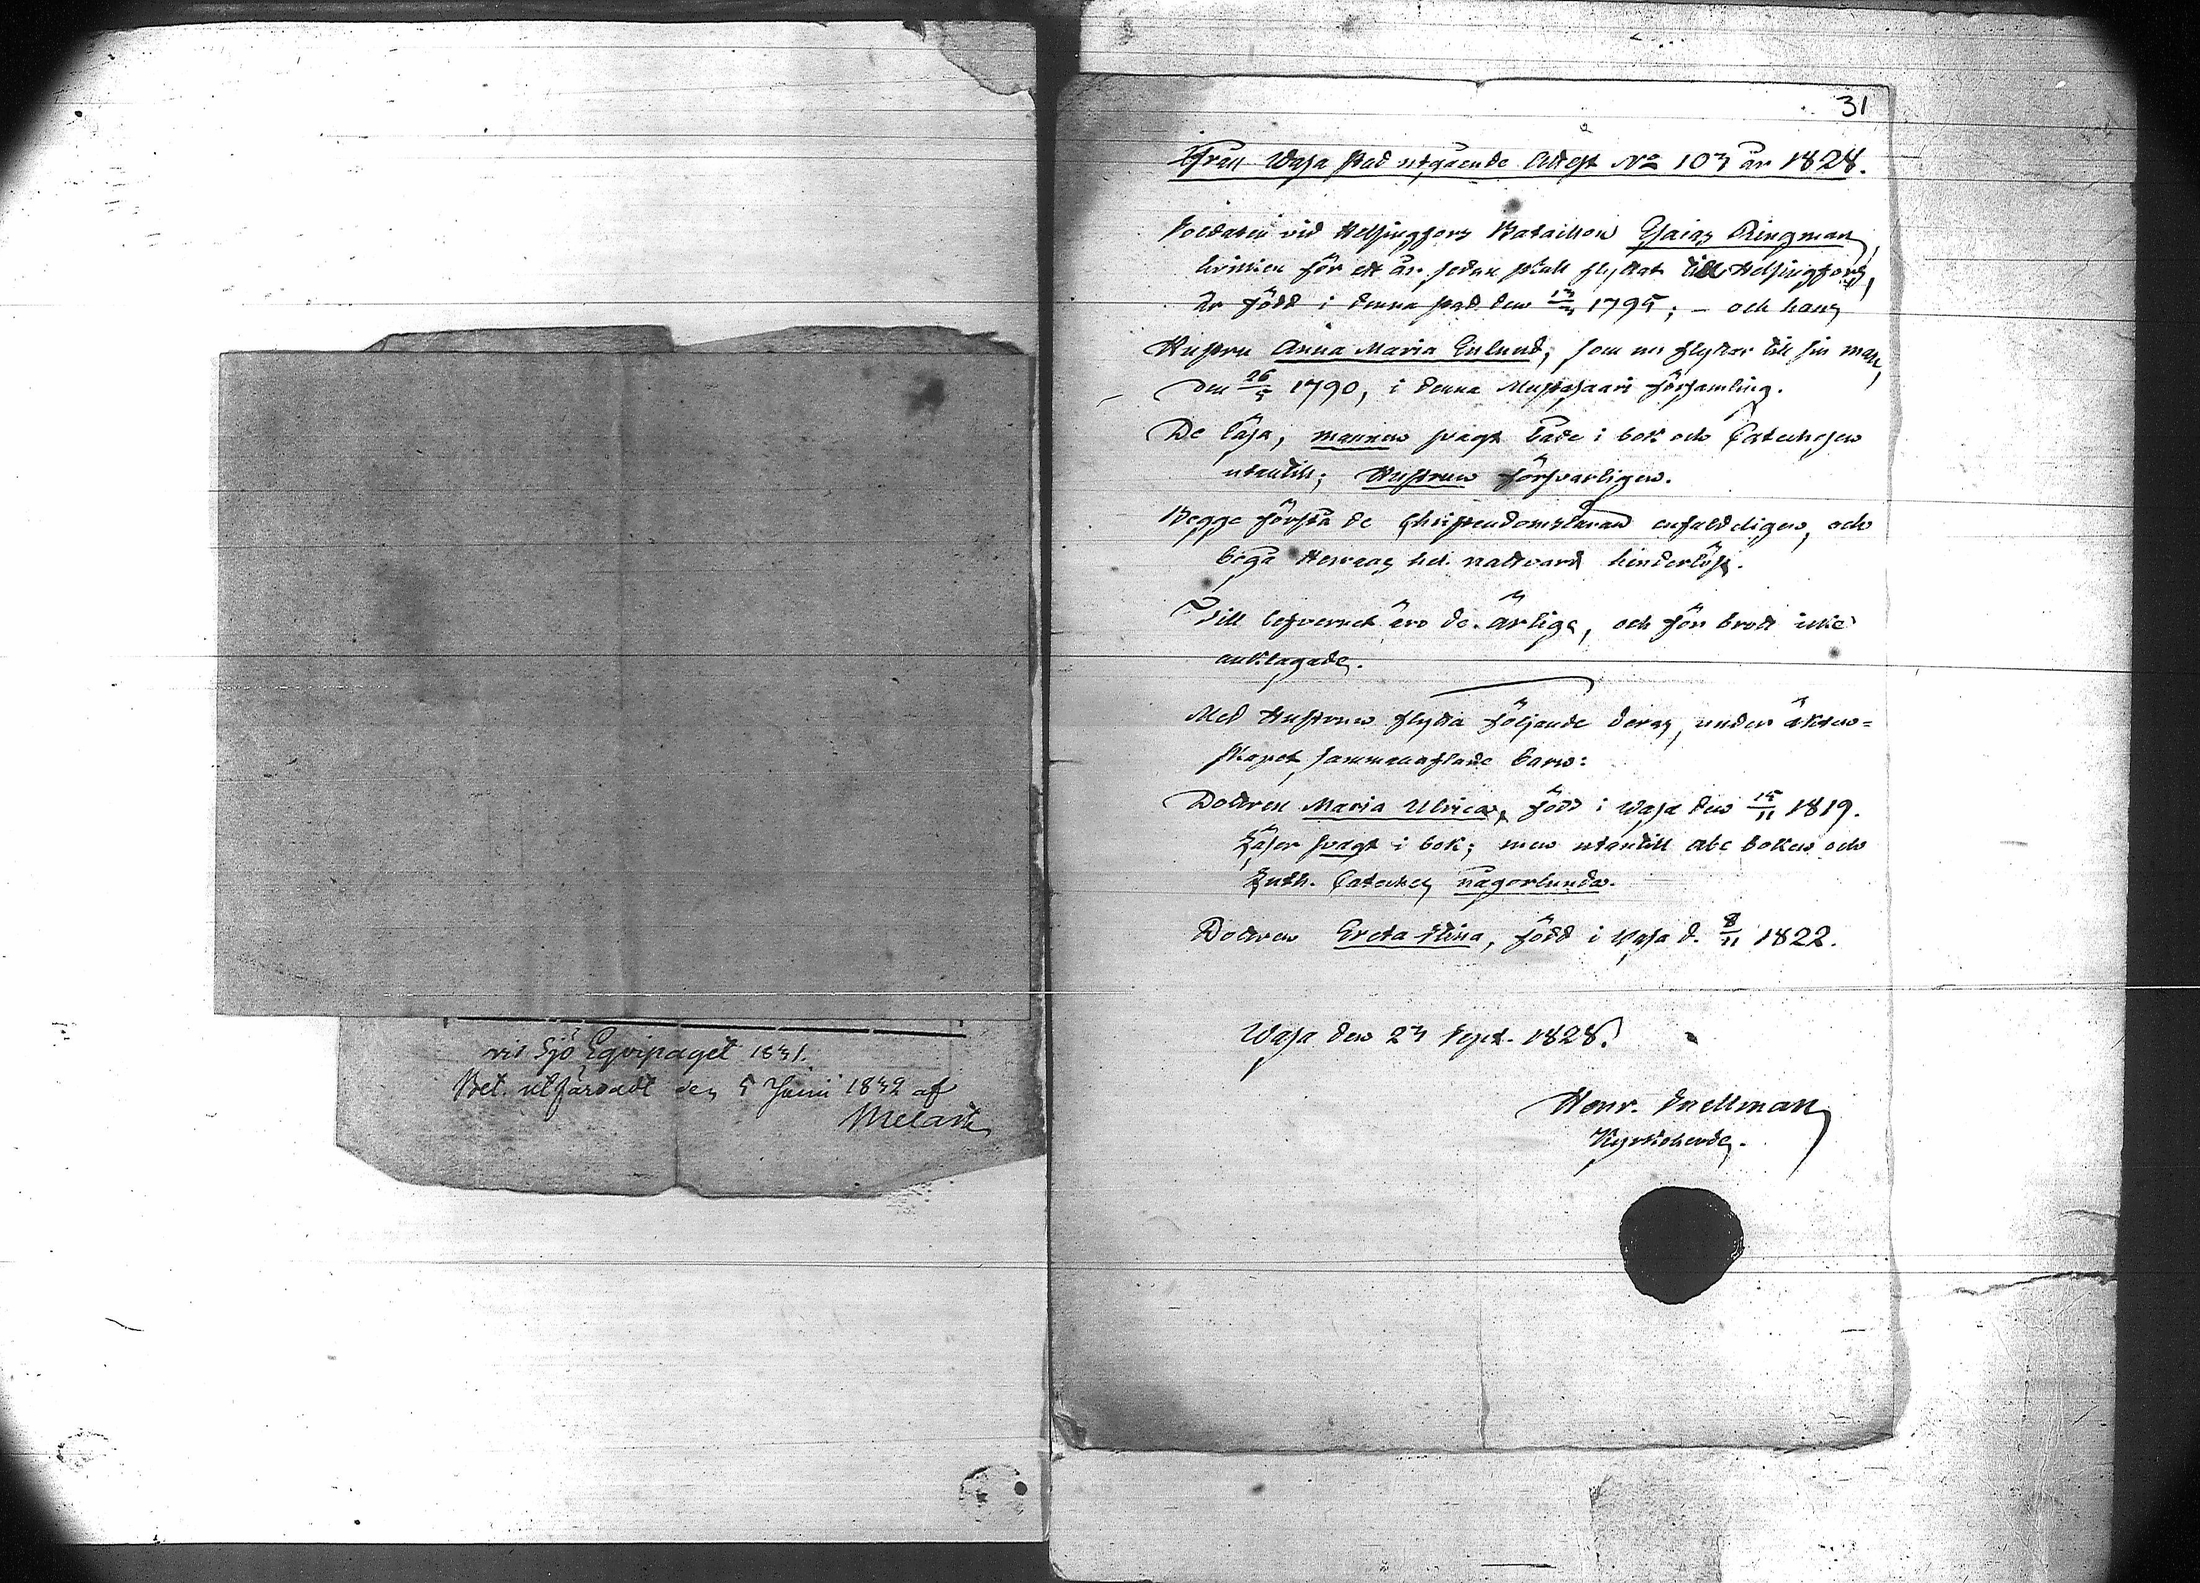 vid Sjö Eqvipaget 1831.
Bet. utfärdadt den 5 Junii 1832 af
Melart
31
Från Wasa stad utgående Attest No 103 år 1828.
Soldaten vid Helsingfors Bataillon Esaias Ringman,
hvilken för ett år sedan skall flyttat till Helsingfors,
är född i denna stad den 13/3 1795; – och hans
Hustru Anna Maria Enlund, som nu flyttar till sin man,
den 26/5 1790, i denna Mustasaari församling.
De läsa, mannen svagt både i bok och Catechesen
utantill; Hustrun försvarligen.
Begge förstå de Christendomsläran enfaldeligen, och
begå Herrans hel. nattvard hinderlöst.
Till lefvernet äro de ärlige, och för brott icke
anklagade.
Med Hustrun flytta följande deras, under äkten-
skapet sammanaflade barn:
Dottren Maria Ulrica, född i Wasa den 15/11 1819.
Läser svagt i bok; men utantill abc boken och
Luth. Cateches någorlunda.
Dottren Greta Stina, född i Wasa d. 8/11 1822.
Wasa den 23 Sept. 1828.
Henr. Snellman
Kyrkoherde.